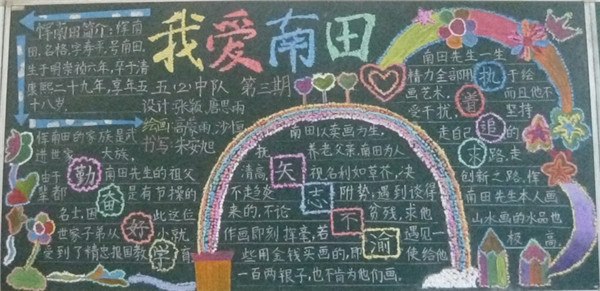 我爱南田
恽南田简介:恽南
田,名格,字寿平,号南田,
生于明崇祯六年,卒于清
康熙二十九年,享年五
十八岁。
五(2)中队 第三期
设计:张颖 唐思雨
绘画:高蒙雨,沙恒
书写:朱安旭
恽南田的家族是武
进世家 大族,
由于 南田先生的祖父
辈都 是有节操的
名士,因 此这位
世家子弟从 小就
受到了精忠报国教 育
勤
奋
好
学
南田以卖画为生,
我 养老父亲,南田为人
清高, 视名利如草芥,决
不走趋炎 附势,遇到谈得
来的,不论 贫贱,求他
作画即刻挥毫,若 遇见一
些用金钱买画的,即 使给他
一百两银子,也不肯为他们画。
矢
志
不
渝
南田先生一生
精力全部用 于绘
画艺术, 而且他不
受干扰, 坚持
走自己 的
求 路,走
创新之路,作
南田先生本人画
山水画的水品也
极 高
执
着
追
求